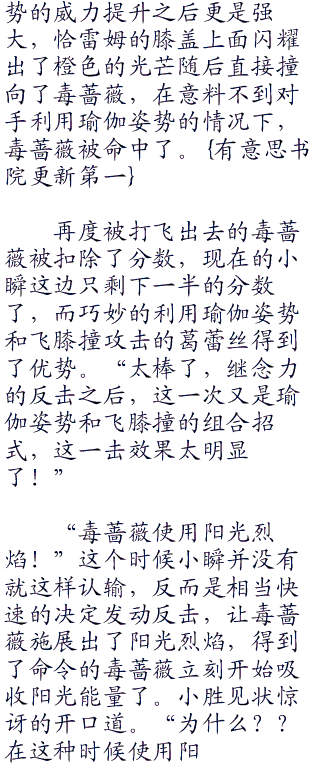 势的威力提升之后更是强
大，恰雷姆的膝盖上面闪耀
出了橙色的光芒随后直接撞
向了毒蔷薇，在意料不到对
手利用瑜伽姿势的情况下，
毒蔷薇被命中了。{有意思书
院更新第一}
再度被打飞出去的毒蔷
薇被扣除了分数，现在的小
瞬这边只剩下一半的分数
了，而巧妙的利用瑜伽姿势
和飞膝撞攻击的葛蕾丝得到
了优势。“太棒了，继念力
的反击之后，这一次又是瑜
伽姿势和飞膝撞的组合招
式，这一击效果太明显
了！”
“毒蔷薇使用阳光烈
焰！”这个时候小瞬并没有
就这样认输，反而是相当快
速的决定发动反击，让毒蔷
薇施展出了阳光烈焰，得到
了命令的毒蔷薇立刻开始吸
收阳光能量了。小胜见状惊
讶的开口道。“为什么？？
在这种时候使用阳